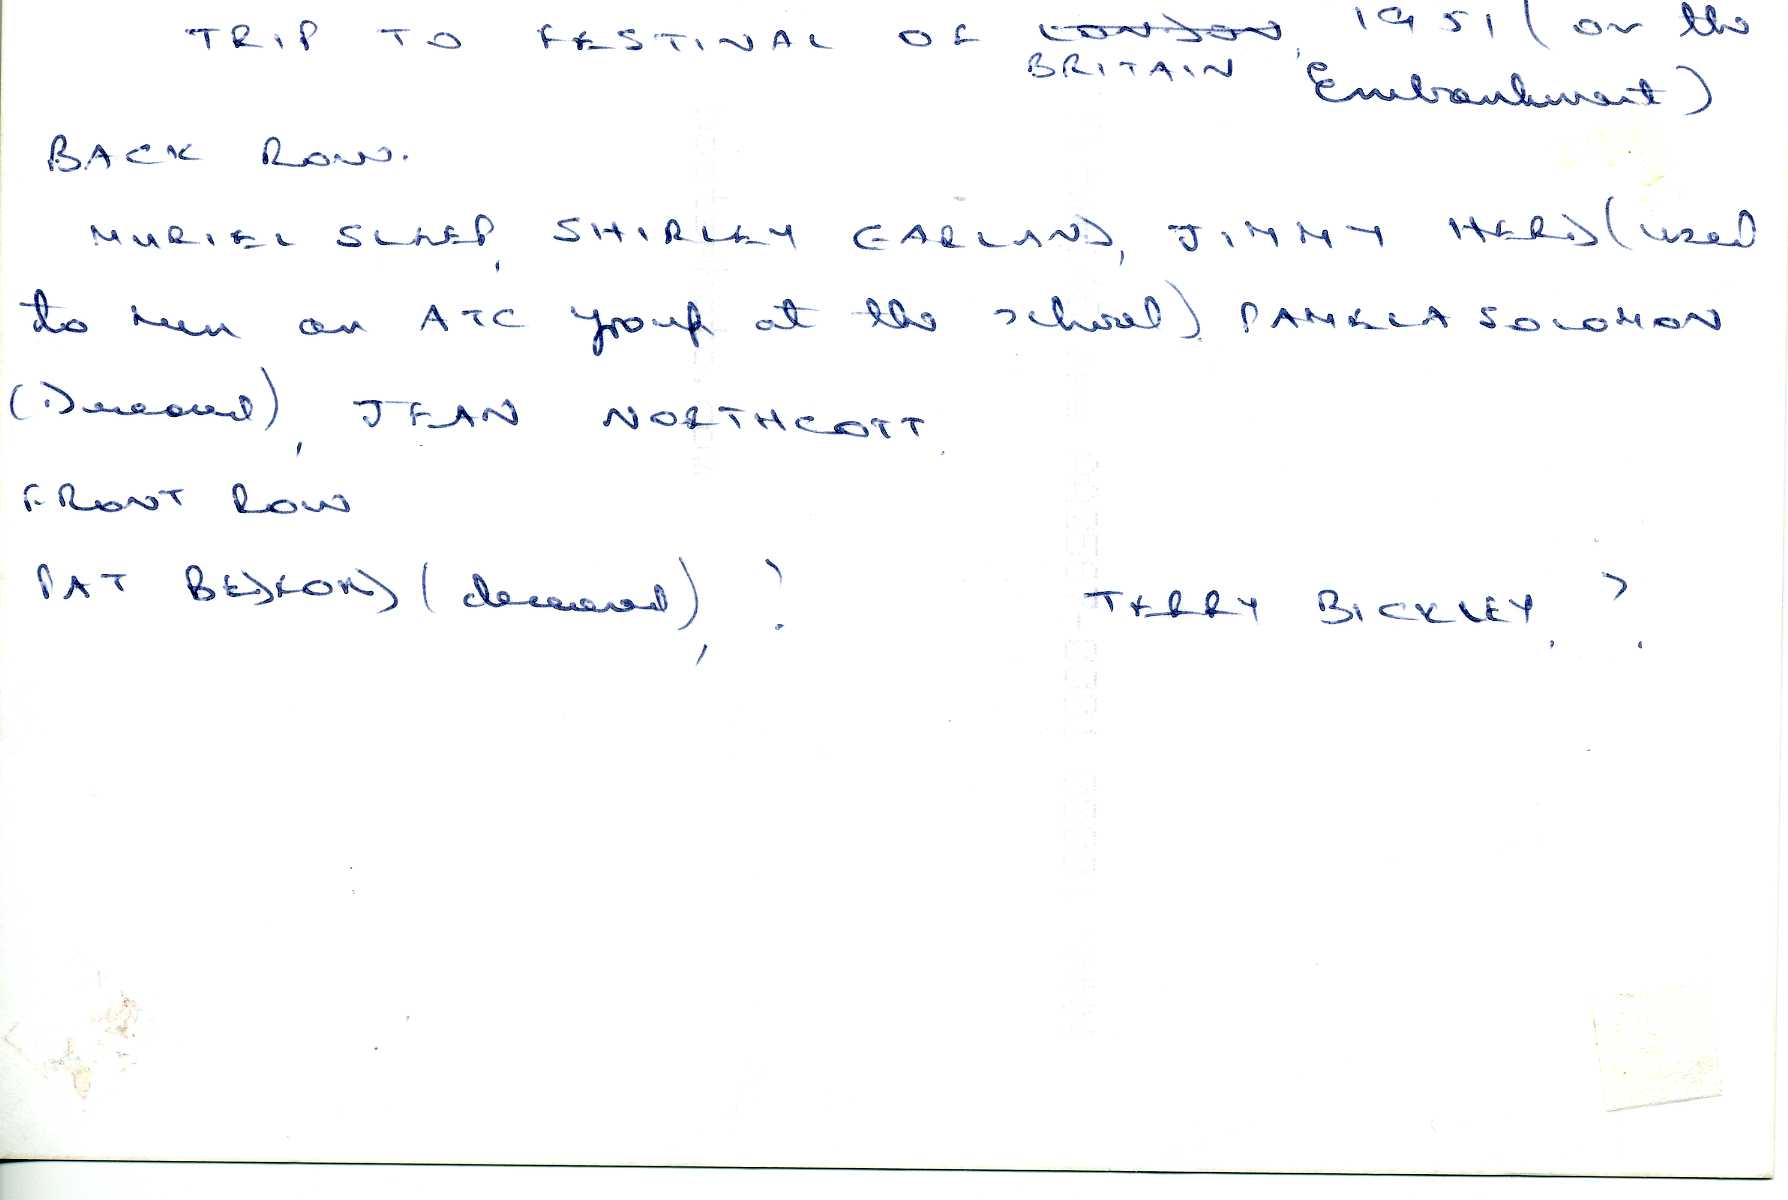 TRIP TO FESTIVAL OF LONDON, 1951 (on the
BRITAIN Embankment)
BACK ROW.
MURIEL SLEEP, SHIRLEY GARLAND, JIMMY HERD (used
to run an ATC group at the school) PAMELA SOLOMON
(Deceased), JEAN NORTHCOTT.
FRONT ROW
PAT BEDFORD (deceased), ? TERRY BICKLEY, ?